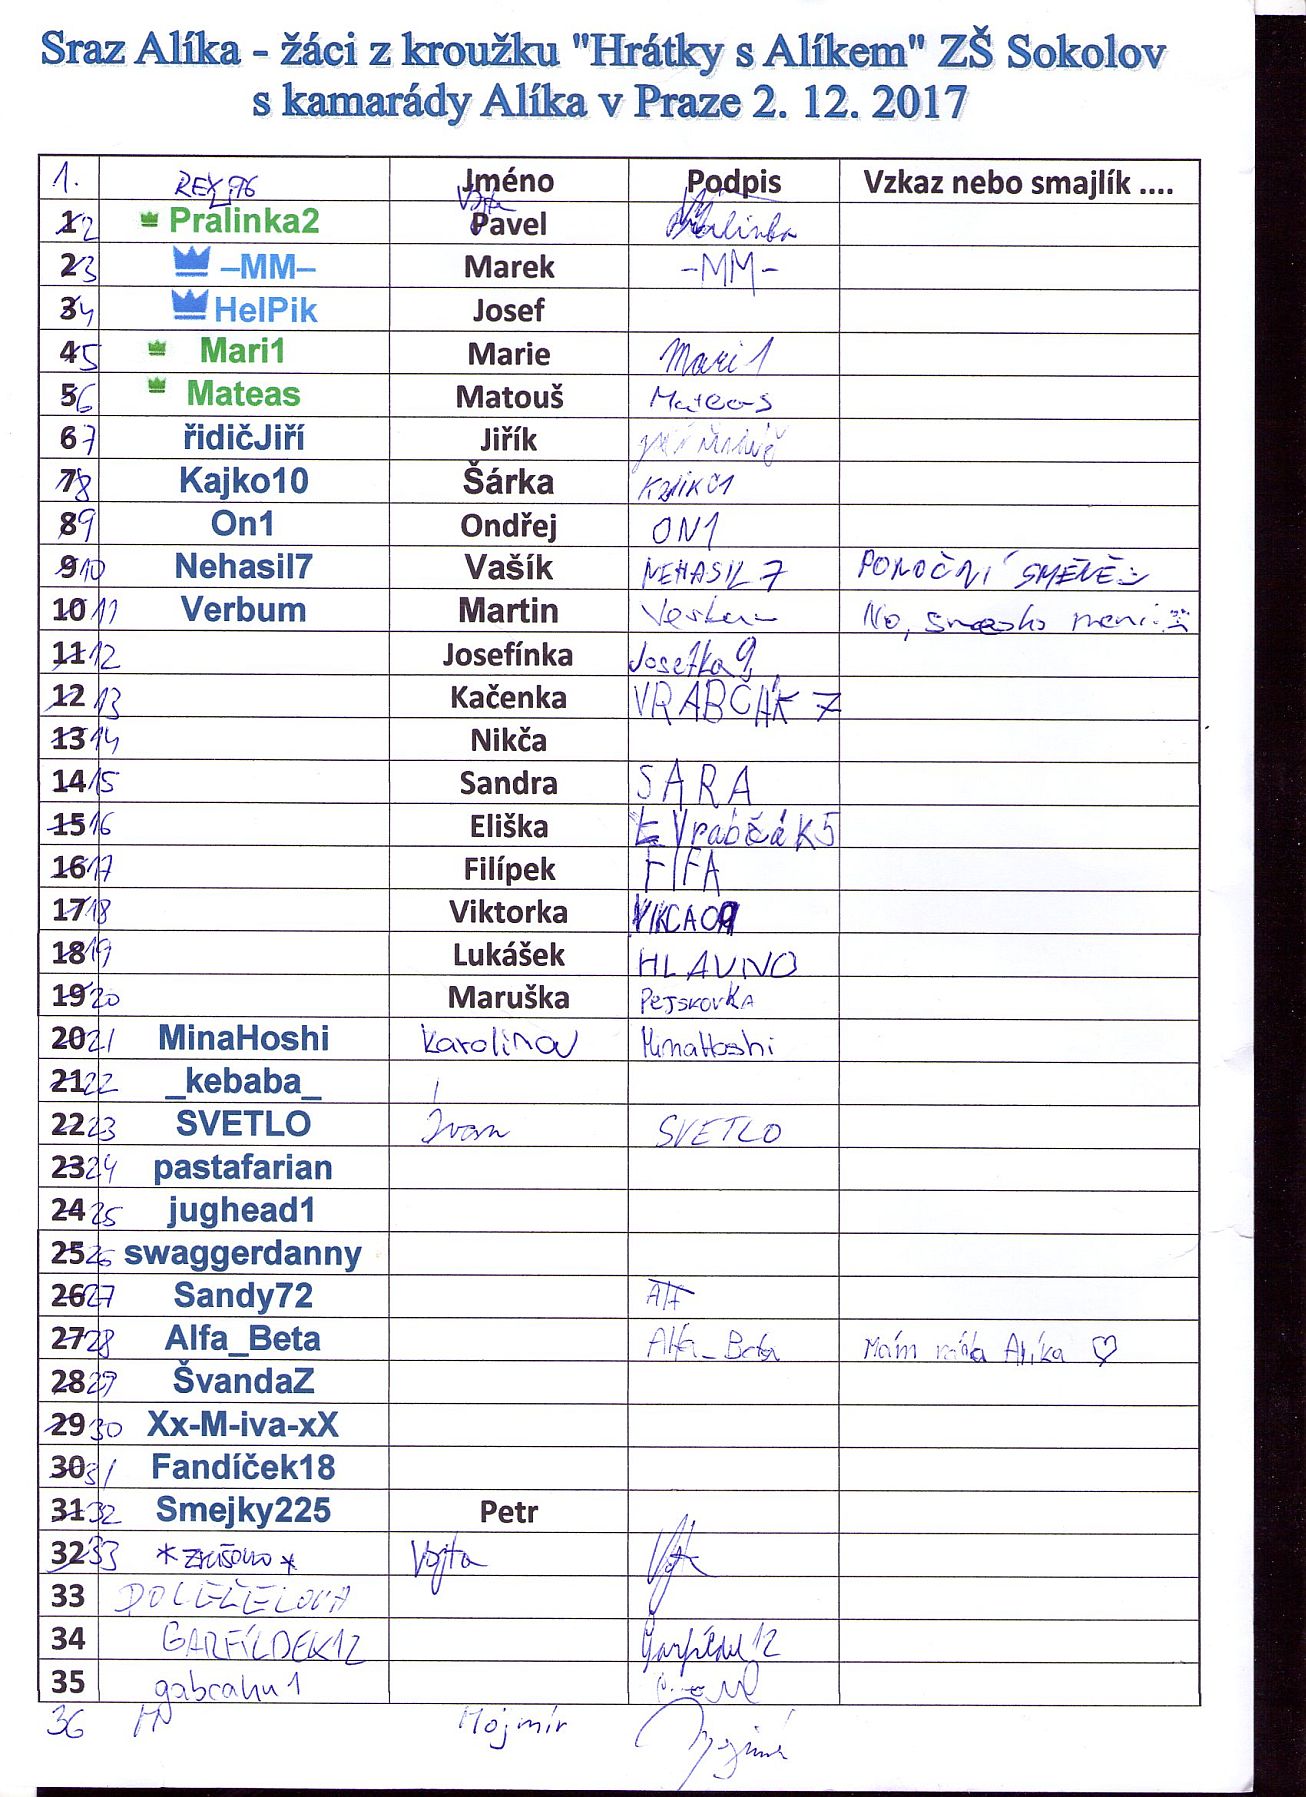 Sraz Alíka - žáci z kroužku "Hrátky s Alíkem" ZŠ Sokolov
s kamarády Alíka v Praze 2. 12. 2017
1. REX96 Jméno Podpis Vzkaz nebo smajlík ....
Vojta
1 2 Pralinka2 Pavel Pralinka
2 3 –MM– Marek -MM-
3 4 HelPik Josef
4 5 Mari1 Marie Mari1
5 6 Mateas Matouš Mateas
6 7 řidičJiří Jiřík
7 8 Kajko10 Šárka
8 9 On1 Ondřej ON1
9 10 Nehasil7 Vašík NEHASIL7 PONOČNÍ SMĚNĚ
10 11 Verbum Martin No, není
11 12 Josefínka Josefka9
12 13 Kačenka VRABČÁK 7
13 14 Nikča
14 15 Sandra SARA
15 16 Eliška E VrabčáK5
16 17 Filípek FIFA
17 18 Viktorka VIKCA09
18 19 Lukášek HLAVNO
19 20 Maruška PEJSKOVKA
20 21 MinaHoshi Karolína MinaHoshi
21 22 _kebaba_
22 23 SVETLO Ivan SVETLO
23 24 pastafarian
24 25 jughead1
25 26 swaggerdanny
26 27 Sandy72
27 28 Alfa_Beta Alfa_Beta Mám ráda Alíka ♡
28 29 ŠvandaZ
29 30 Xx-M-iva-xX
30 31 Fandíček18
31 32 Smejky225 Petr
32 33 *ZRUŠENO* Vojta
33 DOLEŽELOVA
34 GARFÍLDEK12 Garfíldek12
35 gabcahu1
36 Mojmír